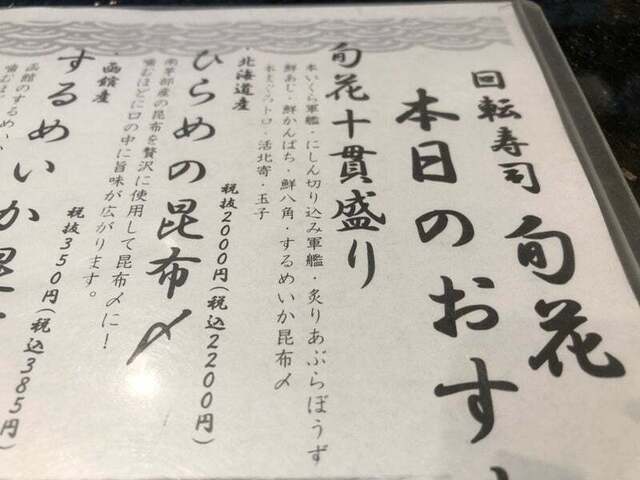 回転寿司 旬花
本日のおす
旬花十貫盛り
本いくら軍艦・にしん切り込み軍艦・炙りあぶらぼうず
鮮あじ・鮮かんぱち・鮮八角・するめいか昆布〆
本まぐろトロ・活北寄・玉子
税抜2000円(税込2200円)
・北海道産
ひらめの昆布〆
南茅部産の昆布を贅沢に使用して昆布〆に!
噛むほどに口の中に旨味が広がります。
税抜350円(税込385円)
・函館産
するめいか昆
函館のするめい
噛むほ